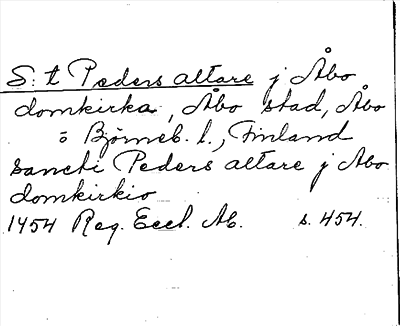 S:t Peders altare j Åbo
domkirka, Åbo stad, Åbo
o Björneb. l., Finland
sancti Peders altare j Åbo
domkirkio
1454 Reg. Eccl. Ab. s. 454.